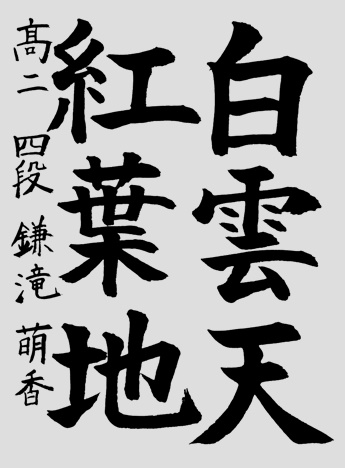 白雲天
紅葉地
高二 四段 鎌滝 萌香